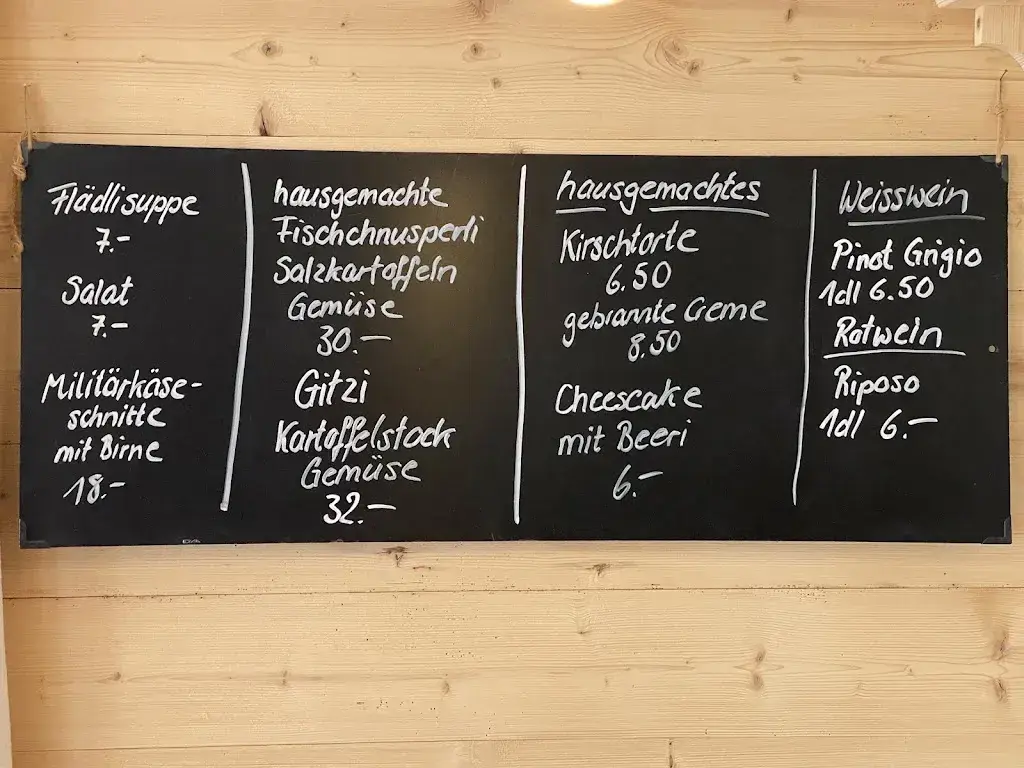 Flädlisuppe
7.-
Salat
7.-
Militärkäse-
schnitte
mit Birne
18.-
hausgemachte
Fischchnusperli
Salzkartoffeln
Gemüse
30.-
Gitzi
Kartoffelstock
Gemüse
32.-
hausgemachtes
Kirschtorte
6.50
gebrannte Creme
8.50
Cheesecake
mit Beeri
6.-
Weisswein
Pinot Grigio
1dl 6.50
Rotwein
Riposo
1dl 6.-